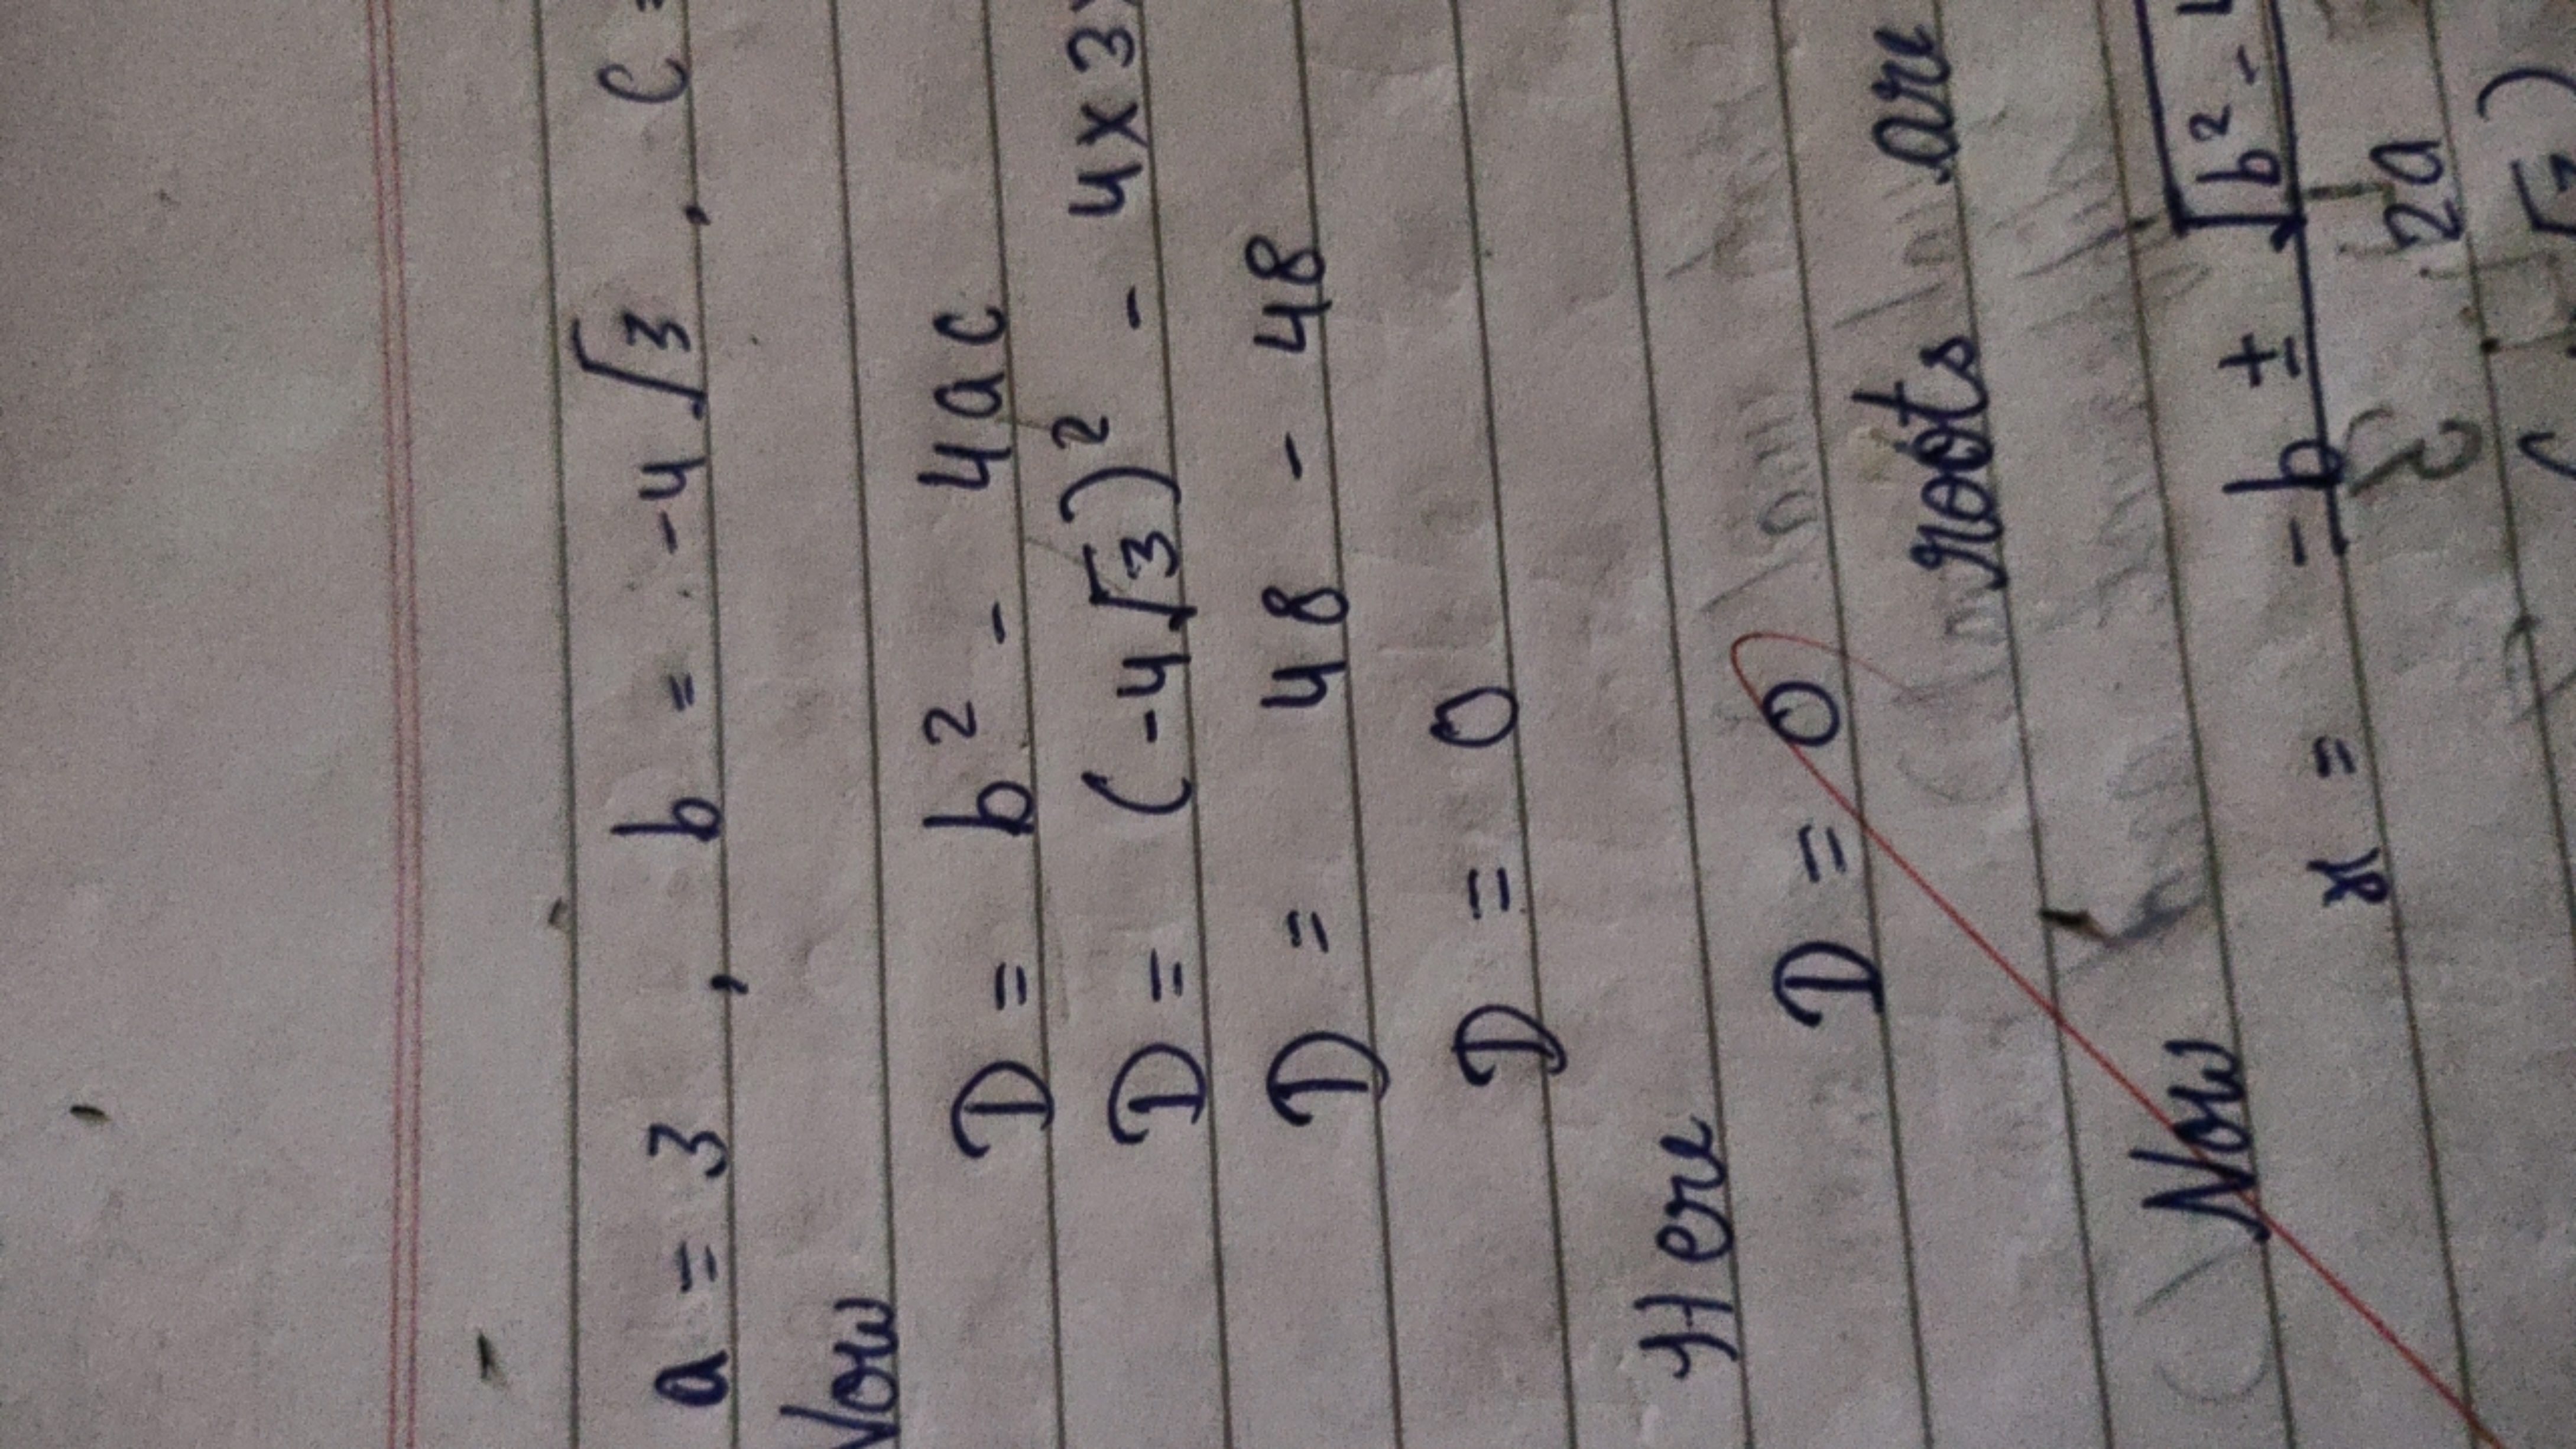 a = 3 , b = -4√3 , c =
Now
D = b² - 4ac
D = (-4√3)² - 4×3×
D = 48 - 48
D = 0
Here
D = 0
roots are
Now
x = -b ± √b² - 4
2a